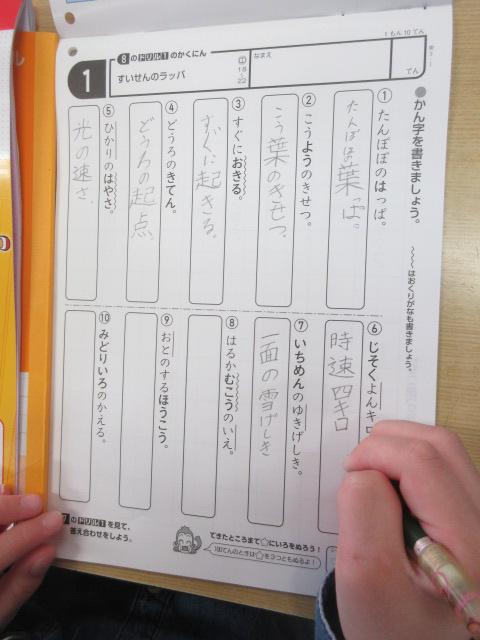 1もん10てん
8のドリル1のかくにん
1
すいせんのラッパ
18〜22
なまえ
てん
●かん字を書きましょう。
〜〜〜はおくりがなも書きましょう。
①たんぽぽのはっぱ。
たんぽぽの葉っぱ。
②こうようのきせつ。
こう葉のきせつ。
③すぐにおきる。
すぐに起きる。
④どうろのきてん。
どうろの起点。
⑤ひかりのはやさ。
光の速さ。
⑥じそくよんキロ
時速四キロ
⑦いちめんのゆきげしき。
一面の雪げしき
⑧はるかむこうのいえ。
⑨おとのするほうこう。
⑩みどりいろのかえる。
のドリル1を見て、
答え合わせをしよう。
できたところまで☆にいろをぬろう!
100てんのときは☆を3つともぬるよ!